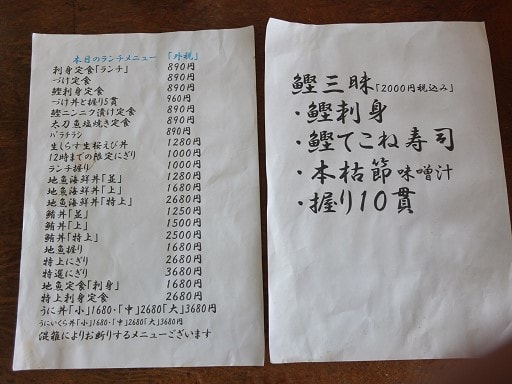 本日のランチメニュー 「外税」
刺身定食「ランチ」 890円
づけ定食 890円
鰹刺身定食 890円
づけ丼と握り5貫 960円
鰹ニンニク漬け定食 890円
太刀魚塩焼き定食 890円
バラチラシ 890円
生しらす生桜えび丼 1280円
12時までの限定にぎり 1000円
ランチ握り 1000円
地魚海鮮丼「並」 1280円
地魚海鮮丼「上」 1680円
地魚海鮮丼「特上」 2680円
鮪丼「並」 1250円
鮪丼「上」 1500円
鮪丼「特上」 2500円
地魚握り 1680円
特上にぎり 2680円
特選にぎり 3680円
地魚定食「刺身」 1680円
特上刺身定食 2680円
うに丼「小」1680・「中」2680「大」3680円
うにいくら丼「小」1680・「中」2680「大」3680円
混雑によりお断りするメニューございます
鰹三昧「2000円税込み」
・鰹刺身
・鰹てこね寿司
・本枯節味噌汁
・握り10貫